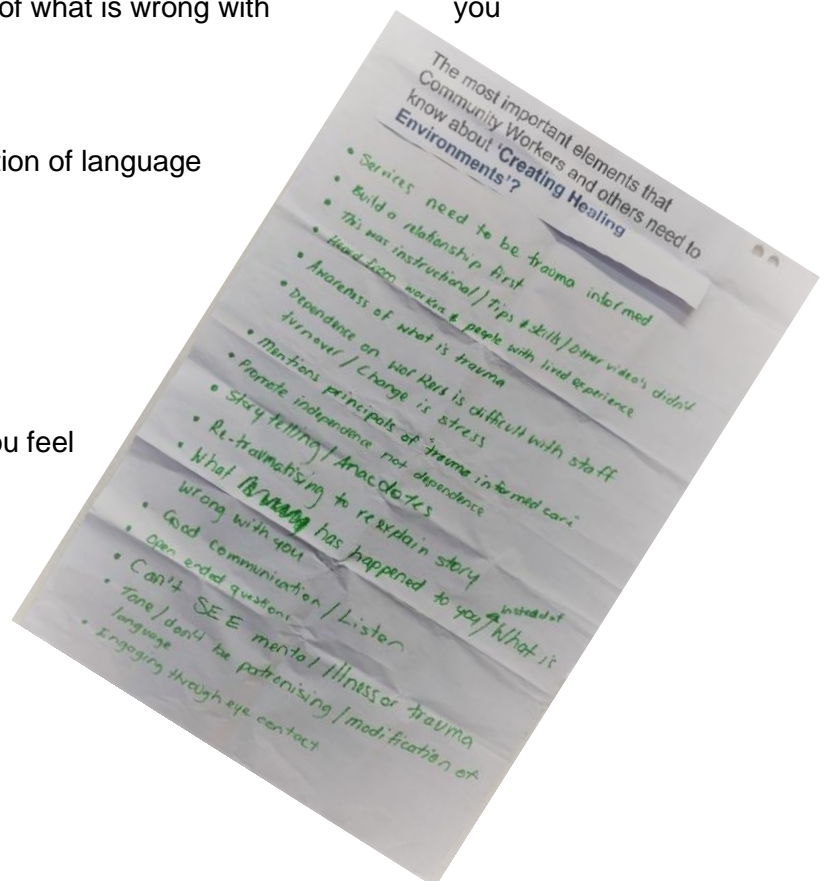 of what is wrong with you
tion of language
ou feel
The most important elements that
Community Workers and others need to
know about 'Creating Healing
Environments'?
• Services need to be trauma informed
• Build a relationship first
• This was instructional / tips & skills / Other video's didn't
• Heard from workers & people with lived experience
• Awareness of what is trauma
• Dependence on workers is difficult with staff
turnover / Change is stress
• Mentions principals of trauma informed care
• Promote independence not dependence
• Story telling / Anacdotes
• Re-traumatising to reexplain story
• What has happened to you / instead of What is
wrong with you
• Good communication / Listen
• Open ended questions
• Can't SEE mental illness or trauma
• Tone / don't be patronising / modification of
language
• Engaging through eye contact